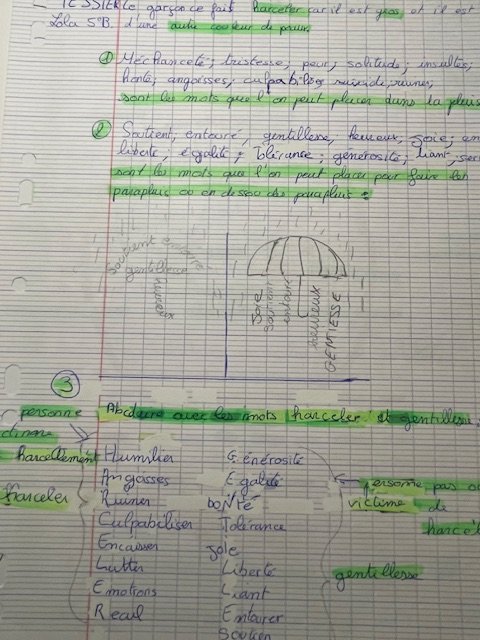 TESSIER Le garçon ce fait harceler car il est gros et il est
Lola 5°B. d'une autre couleur de peau.
① Méchanceté ; tristesse, peur, solitude ; insultes,
honte, angoisses, culpabilisé, suicide, ruiner,
sont les mots que l'on peut placer dans la pluie
② Soutient, entouré, gentillesse, heureux, joie ;
liberté, égalité ; tolérance ; générosité ; liant,
sont les mots que l'on peut placer pour faire les
parapluie ou en dessou des parapluie :
Soutient entouré
gentillesse
heureux
Joie
Soutient
entouré
heureux
GENTIESSE
③
personne Abcdaire avec les mots harceler et gentillesse.
harcellement Humilier Générosité
Angasses Egalité personne pas ou
harceler Ruiner boNté victime de
Culpabiliser Tolérance harcél
Encaisser Joie
Lutter Liberté gentillesse
Emotions Liant
Recul Entourer
Soutien